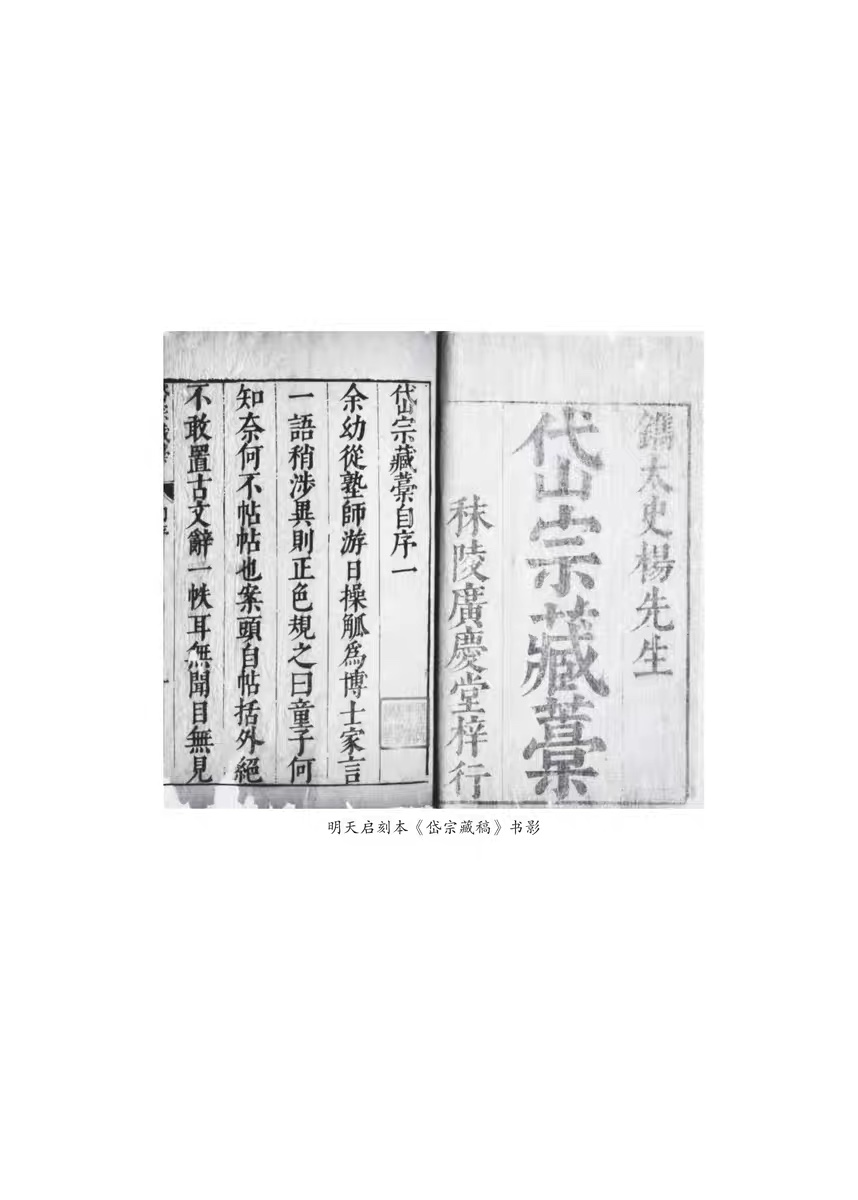 鐫太史楊先生
岱宗藏藁
秣陵廣慶堂梓行
岱宗藏藁自序一
余幼從塾師游日操觚爲博士家言
一語稍涉異則正色規之曰童子何
知奈何不帖帖也案頭自帖括外絕
不敢置古文辭一帙耳無聞目無見
明天启刻本《岱宗藏稿》书影